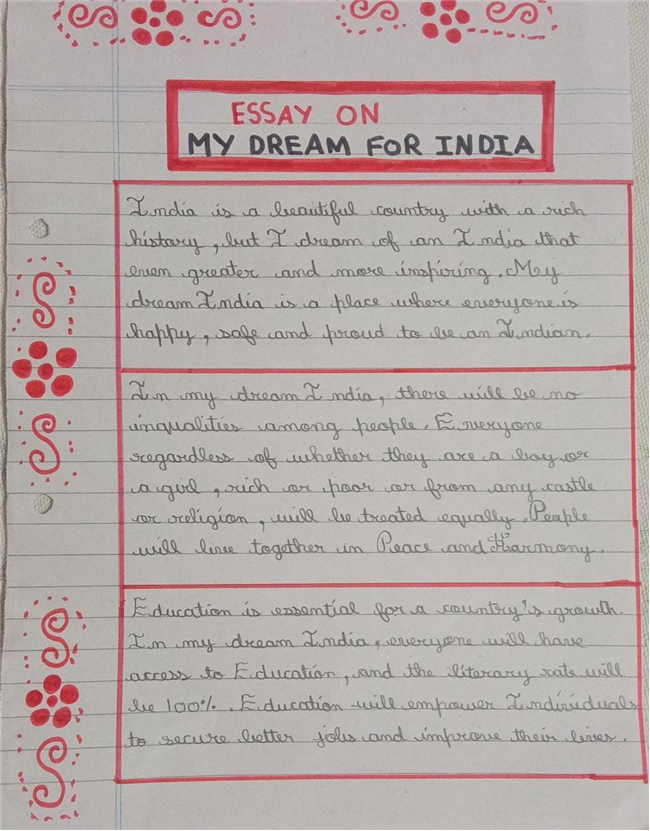 ESSAY ON
MY DREAM FOR INDIA
India is a beautiful country with a rich
history, but I dream of an India that
even greater and more inspiring. My
dream India is a place where everyone is
happy, safe and proud to be an Indian.
In my dream India, there will be no
inqualities among people. Everyone
regardless of whether they are a boy or
a girl, rich or poor or from any castle
or religion, will be treated equally. People
will live together in Peace and Harmony.
Education is essential for a country's growth.
In my dream India, everyone will have
access to Education, and the literary rate will
be 100%. Education will empower Individuals
to secure better jobs and improve their lives.